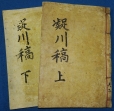 凝川稿 上
川稿 下